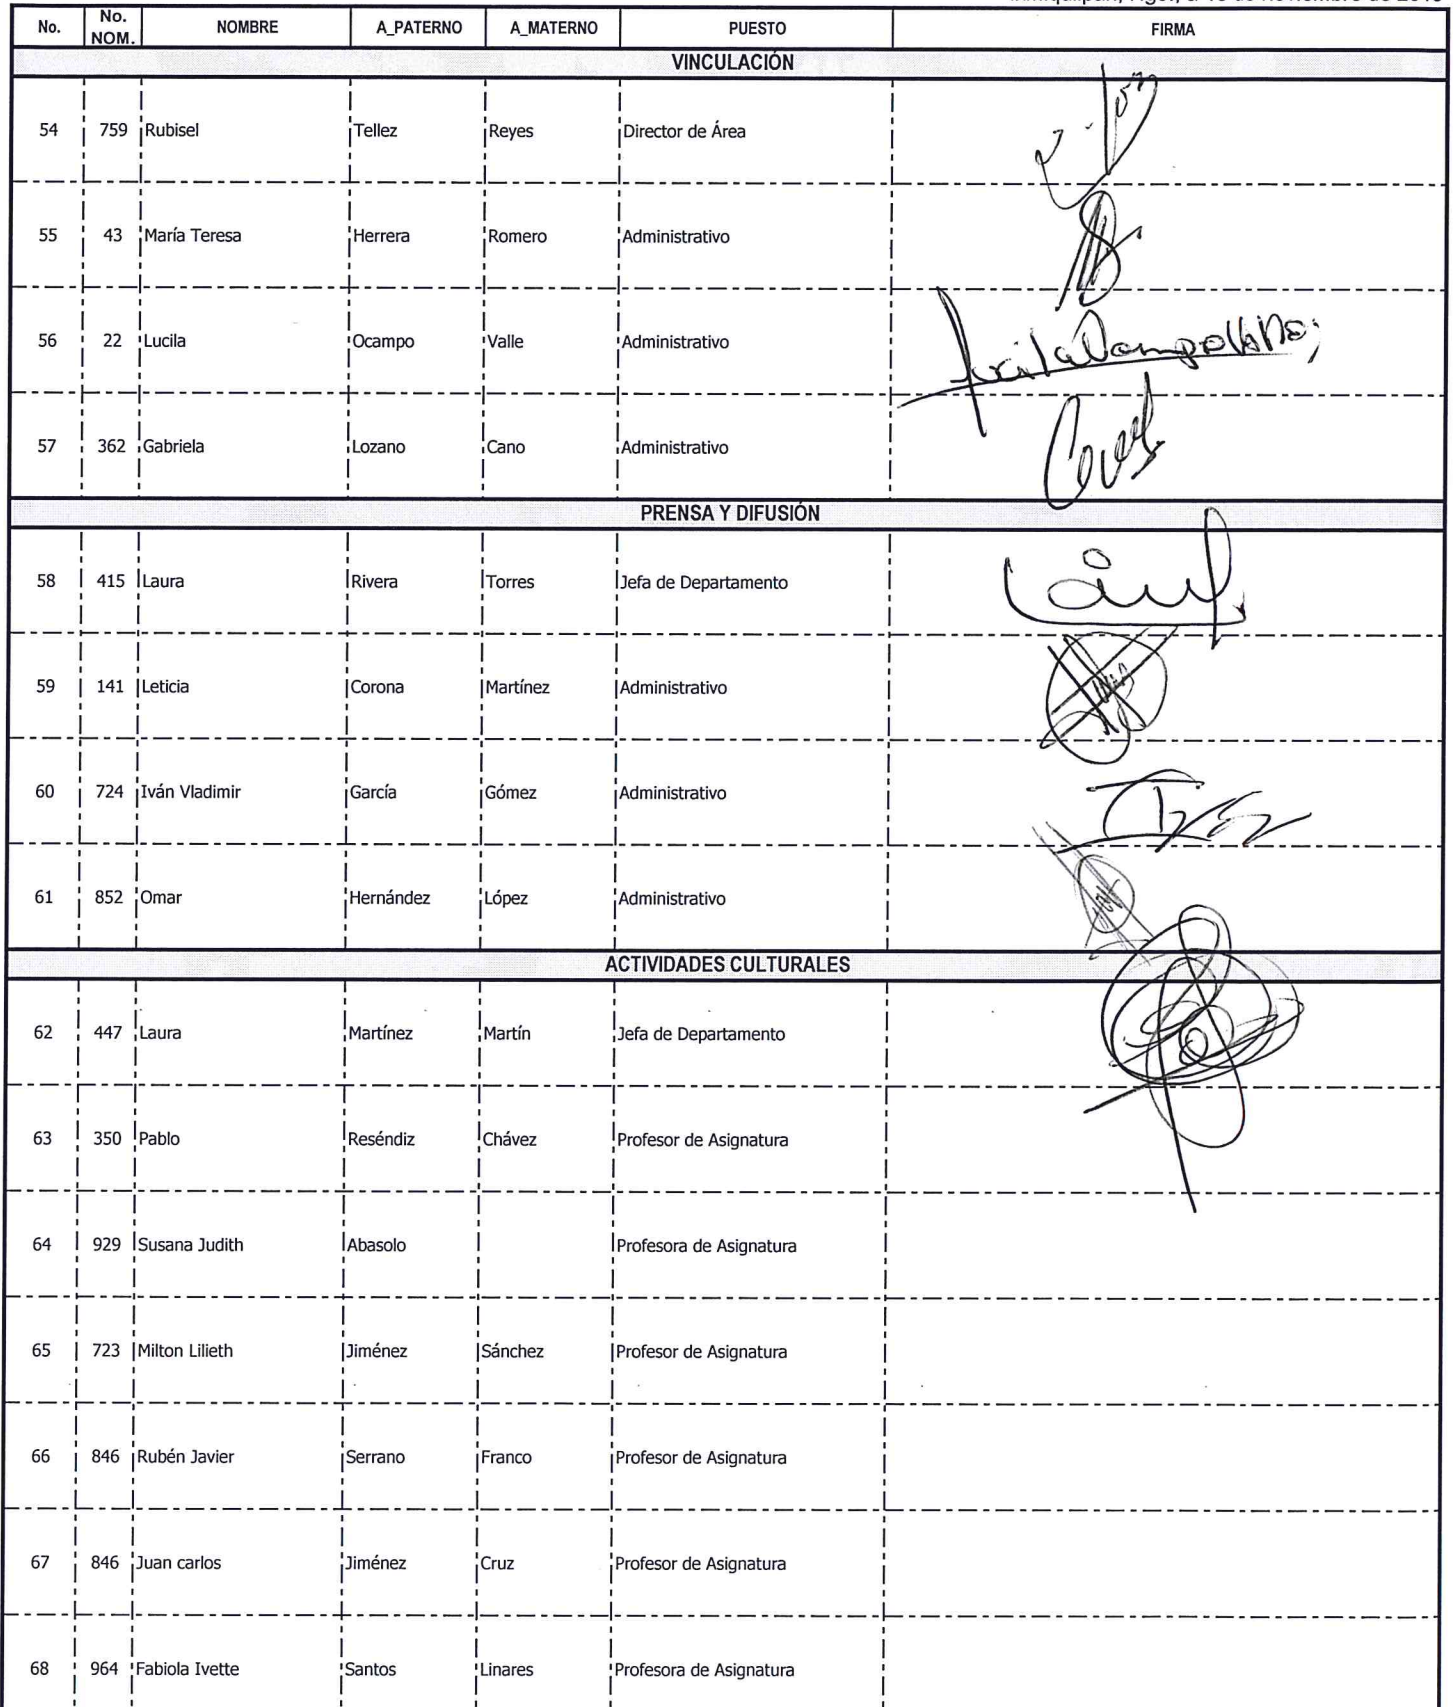 No. No. NOM. NOMBRE A_PATERNO A_MATERNO PUESTO FIRMA
VINCULACIÓN
54 759 Rubisel Tellez Reyes Director de Área
55 43 María Teresa Herrera Romero Administrativo
56 22 Lucila Ocampo Valle Administrativo
57 362 Gabriela Lozano Cano Administrativo
PRENSA Y DIFUSIÓN
58 415 Laura Rivera Torres Jefa de Departamento
59 141 Leticia Corona Martínez Administrativo
60 724 Iván Vladimir García Gómez Administrativo
61 852 Omar Hernández López Administrativo
ACTIVIDADES CULTURALES
62 447 Laura Martínez Martín Jefa de Departamento
63 350 Pablo Reséndiz Chávez Profesor de Asignatura
64 929 Susana Judith Abasolo Profesora de Asignatura
65 723 Milton Lilieth Jiménez Sánchez Profesor de Asignatura
66 846 Rubén Javier Serrano Franco Profesor de Asignatura
67 846 Juan carlos Jiménez Cruz Profesor de Asignatura
68 964 Fabiola Ivette Santos Linares Profesora de Asignatura